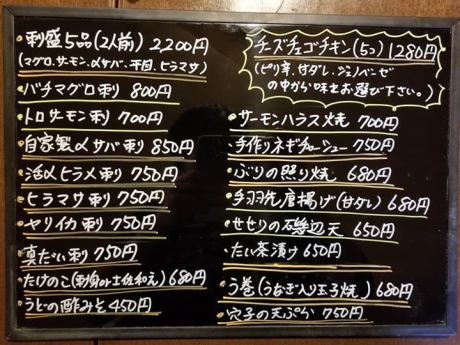 ・刺盛5品(2人前) 2,200円
(マグロ、サーモン、〆サバ、平目、ヒラマサ)
・バチマグロ刺 800円
・トロサーモン刺 700円
・自家製〆サバ刺 850円
・活〆ヒラメ刺 750円
・ヒラマサ刺 750円
・ヤリイカ刺 750円
・真だい刺 750円
・たけのこ(刺身or土佐和え) 680円
・うどの酢みそ 450円
チーズチェゴチキン(5コ) 1280円
(ピリ辛、甘ダレ、ジェノベーゼ
の中から味をお選び下さい。)
・サーモンハラス焼 700円
・手作りネギチャーシュー 750円
・ぶりの照り焼 680円
・手羽先唐揚げ(甘ダレ) 680円
・せせりの磯辺天 650円
・たい茶漬け 650円
・う巻(うなぎ入り玉子焼) 680円
・穴子の天ぷら 750円